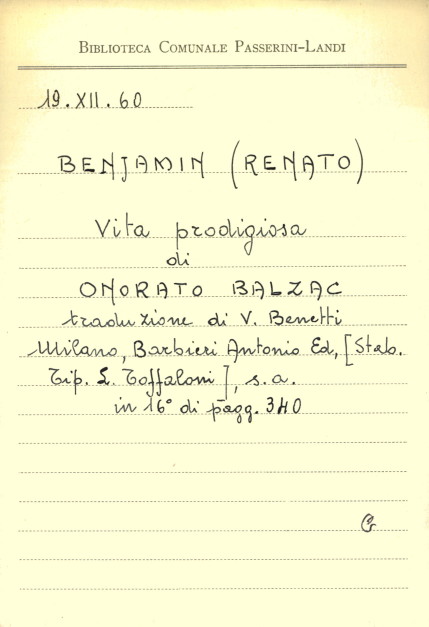 BIBLIOTECA COMUNALE PASSERINI-LANDI
19.XII.60
BENJAMIN (RENATO)
Vita prodigiosa
di
ONORATO BALZAC
traduzione di V. Benetti
Milano, Barbieri Antonio Ed, [Stab.
Tip. L. Toffaloni], s.a.
in 16° di pagg. 340